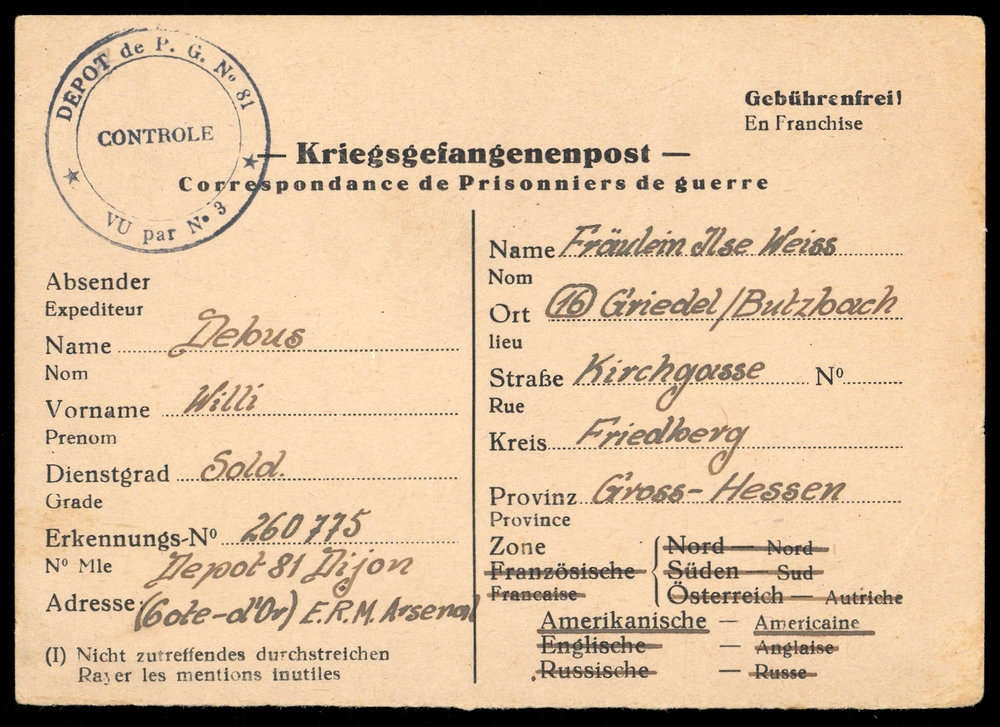 DEPOT de P. G. Nº 81
CONTROLE
VU par Nº 3
Gebührenfrei!
En Franchise
— Kriegsgefangenenpost —
Correspondance de Prisonniers de guerre
Absender
Expediteur
Name Debus
Nom
Vorname Willi
Prenom
Dienstgrad Sold.
Grade
Erkennungs-Nº 260775
Nº Mle Depot 81 Dijon
Adresse (Cote-d'Or) E.R.M. Arsenal
(I) Nicht zutreffendes durchstreichen
Rayer les mentions inutiles
Name Fräulein Ilse Weiss
Nom
Ort (16) Griedel/Butzbach
lieu
Straße Kirchgasse Nº
Rue
Kreis Friedberg
Provinz Gross-Hessen
Province
Zone
Französische
Francaise
{ Nord — Nord
Süden — Sud
Österreich — Autriche
Amerikanische — Americaine
Englische — Anglaise
Russische — Russe